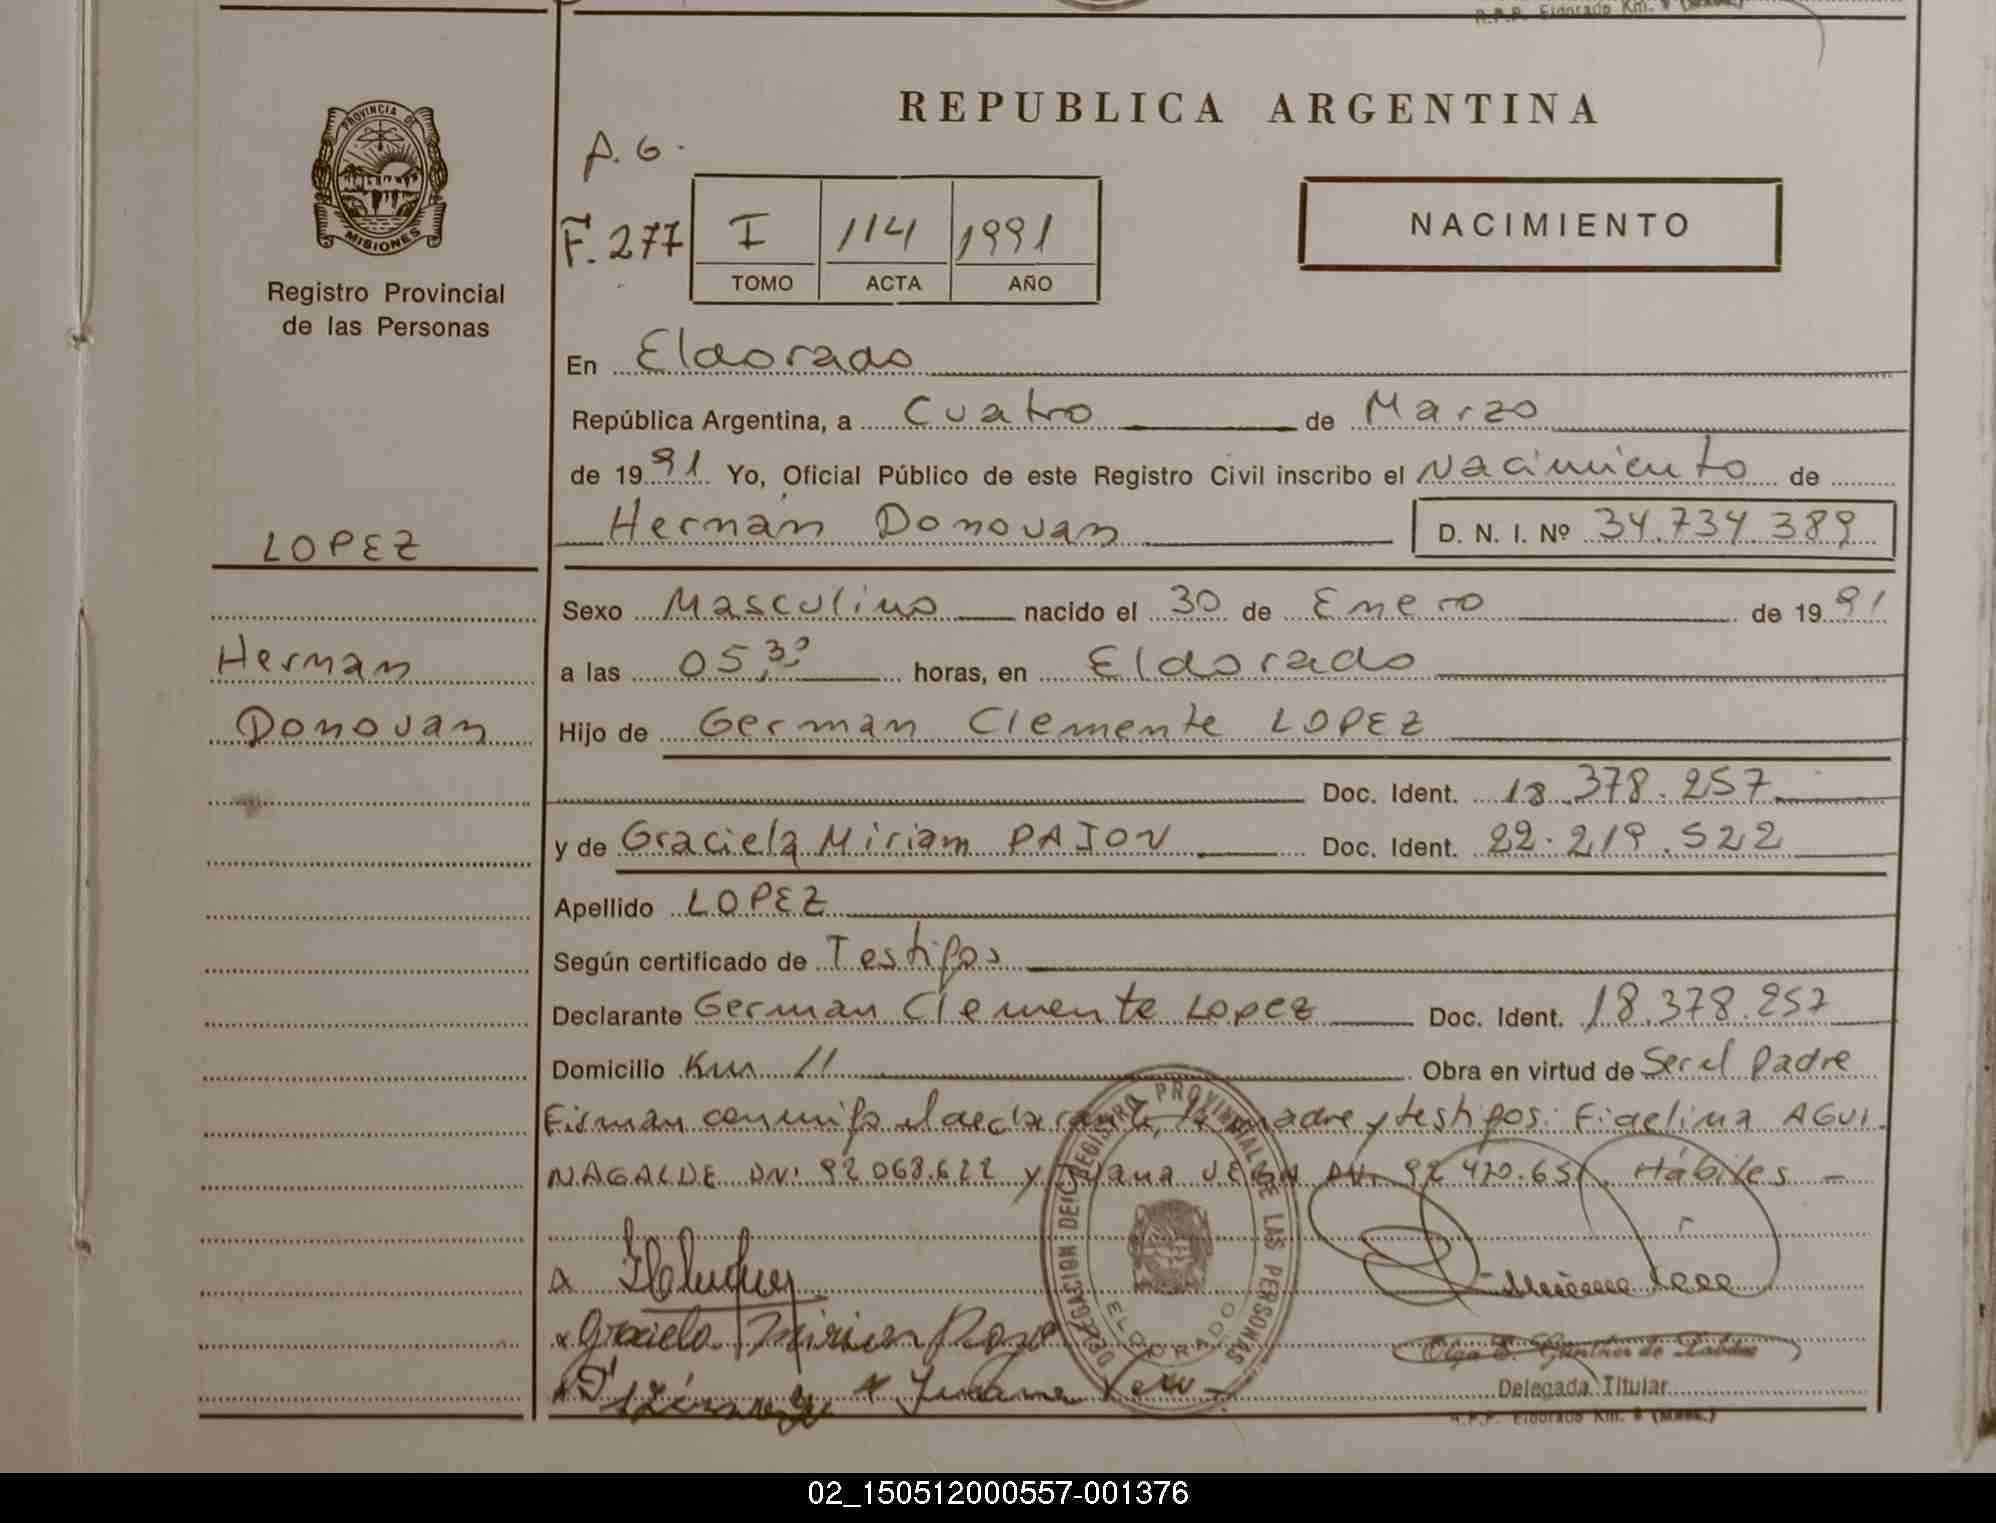 R.P.P. Eldorado Km. 9 (Mnes.)
PROVINCIA DE
MISIONES
Registro Provincial
de las Personas
REPUBLICA ARGENTINA
A.G.
F. 277
I 114 1991
TOMO ACTA AÑO
NACIMIENTO
En Eldorado
República Argentina, a Cuatro de Marzo
de 1991 Yo, Oficial Público de este Registro Civil inscribo el Nacimiento de
Hernán Donovan D. N. I. Nº 34.734.389
LOPEZ
Sexo Masculino nacido el 30 de Enero de 1991
Hernan
a las 05,30 horas, en Eldorado
Donovan
Hijo de German Clemente LOPEZ
Doc. Ident. 18.378.257
y de Graciela Miriam PAJON Doc. Ident. 22.219.522
Apellido LOPEZ
Según certificado de Testigos
Declarante German Clemente Lopez Doc. Ident. 18.378.257
Domicilio Km 11 Obra en virtud de Ser el Padre
Firman conmigo el declarante, la madre y testigos: Fidelina AGUI-
NAGALDE DNI 92.068.622 y Juana VEGA DNI 92.420.651. Hábiles -
DELEGACION DEL REGISTRO PROVINCIAL DE LAS PERSONAS
ELDORADO
Graciela Miriam
Juana
Olga de
Delegada Titular
R.P.P. Eldorado Km. 9 (Mnes.)
02_150512000557-001376